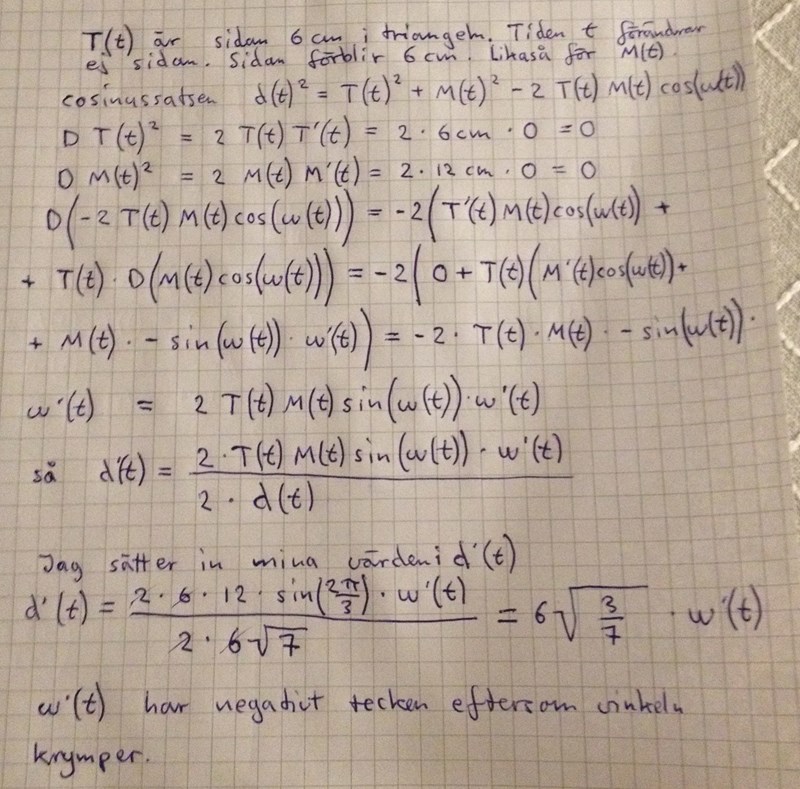 T(t) är sidan 6 cm i triangeln. Tiden t förändrar
ej sidan. Sidan förblir 6 cm. Likaså för M(t).
cosinussatsen d(t)² = T(t)² + M(t)² - 2 T(t) M(t) cos(w(t))
D T(t)² = 2 T(t) T'(t) = 2 · 6 cm · 0 = 0
D M(t)² = 2 M(t) M'(t) = 2 · 12 cm · 0 = 0
D(-2 T(t) M(t) cos(w(t))) = -2(T'(t) M(t) cos(w(t)) +
+ T(t) · D(M(t) cos(w(t))) = -2(0 + T(t)(M'(t) cos(w(t)) +
+ M(t) · - sin(w(t)) · w'(t)) = -2 · T(t) · M(t) · - sin(w(t)) ·
w'(t) = 2 T(t) M(t) sin(w(t)) · w'(t)
så d'(t) = 2 · T(t) M(t) sin(w(t)) · w'(t) / 2 · d(t)
Jag sätter in mina värden i d'(t)
d'(t) = 2 · 6 · 12 · sin(2π/3) · w'(t) / 2 · 6√7 = 6√(3/7) · w'(t)
w'(t) har negativt tecken eftersom vinkeln
krymper.